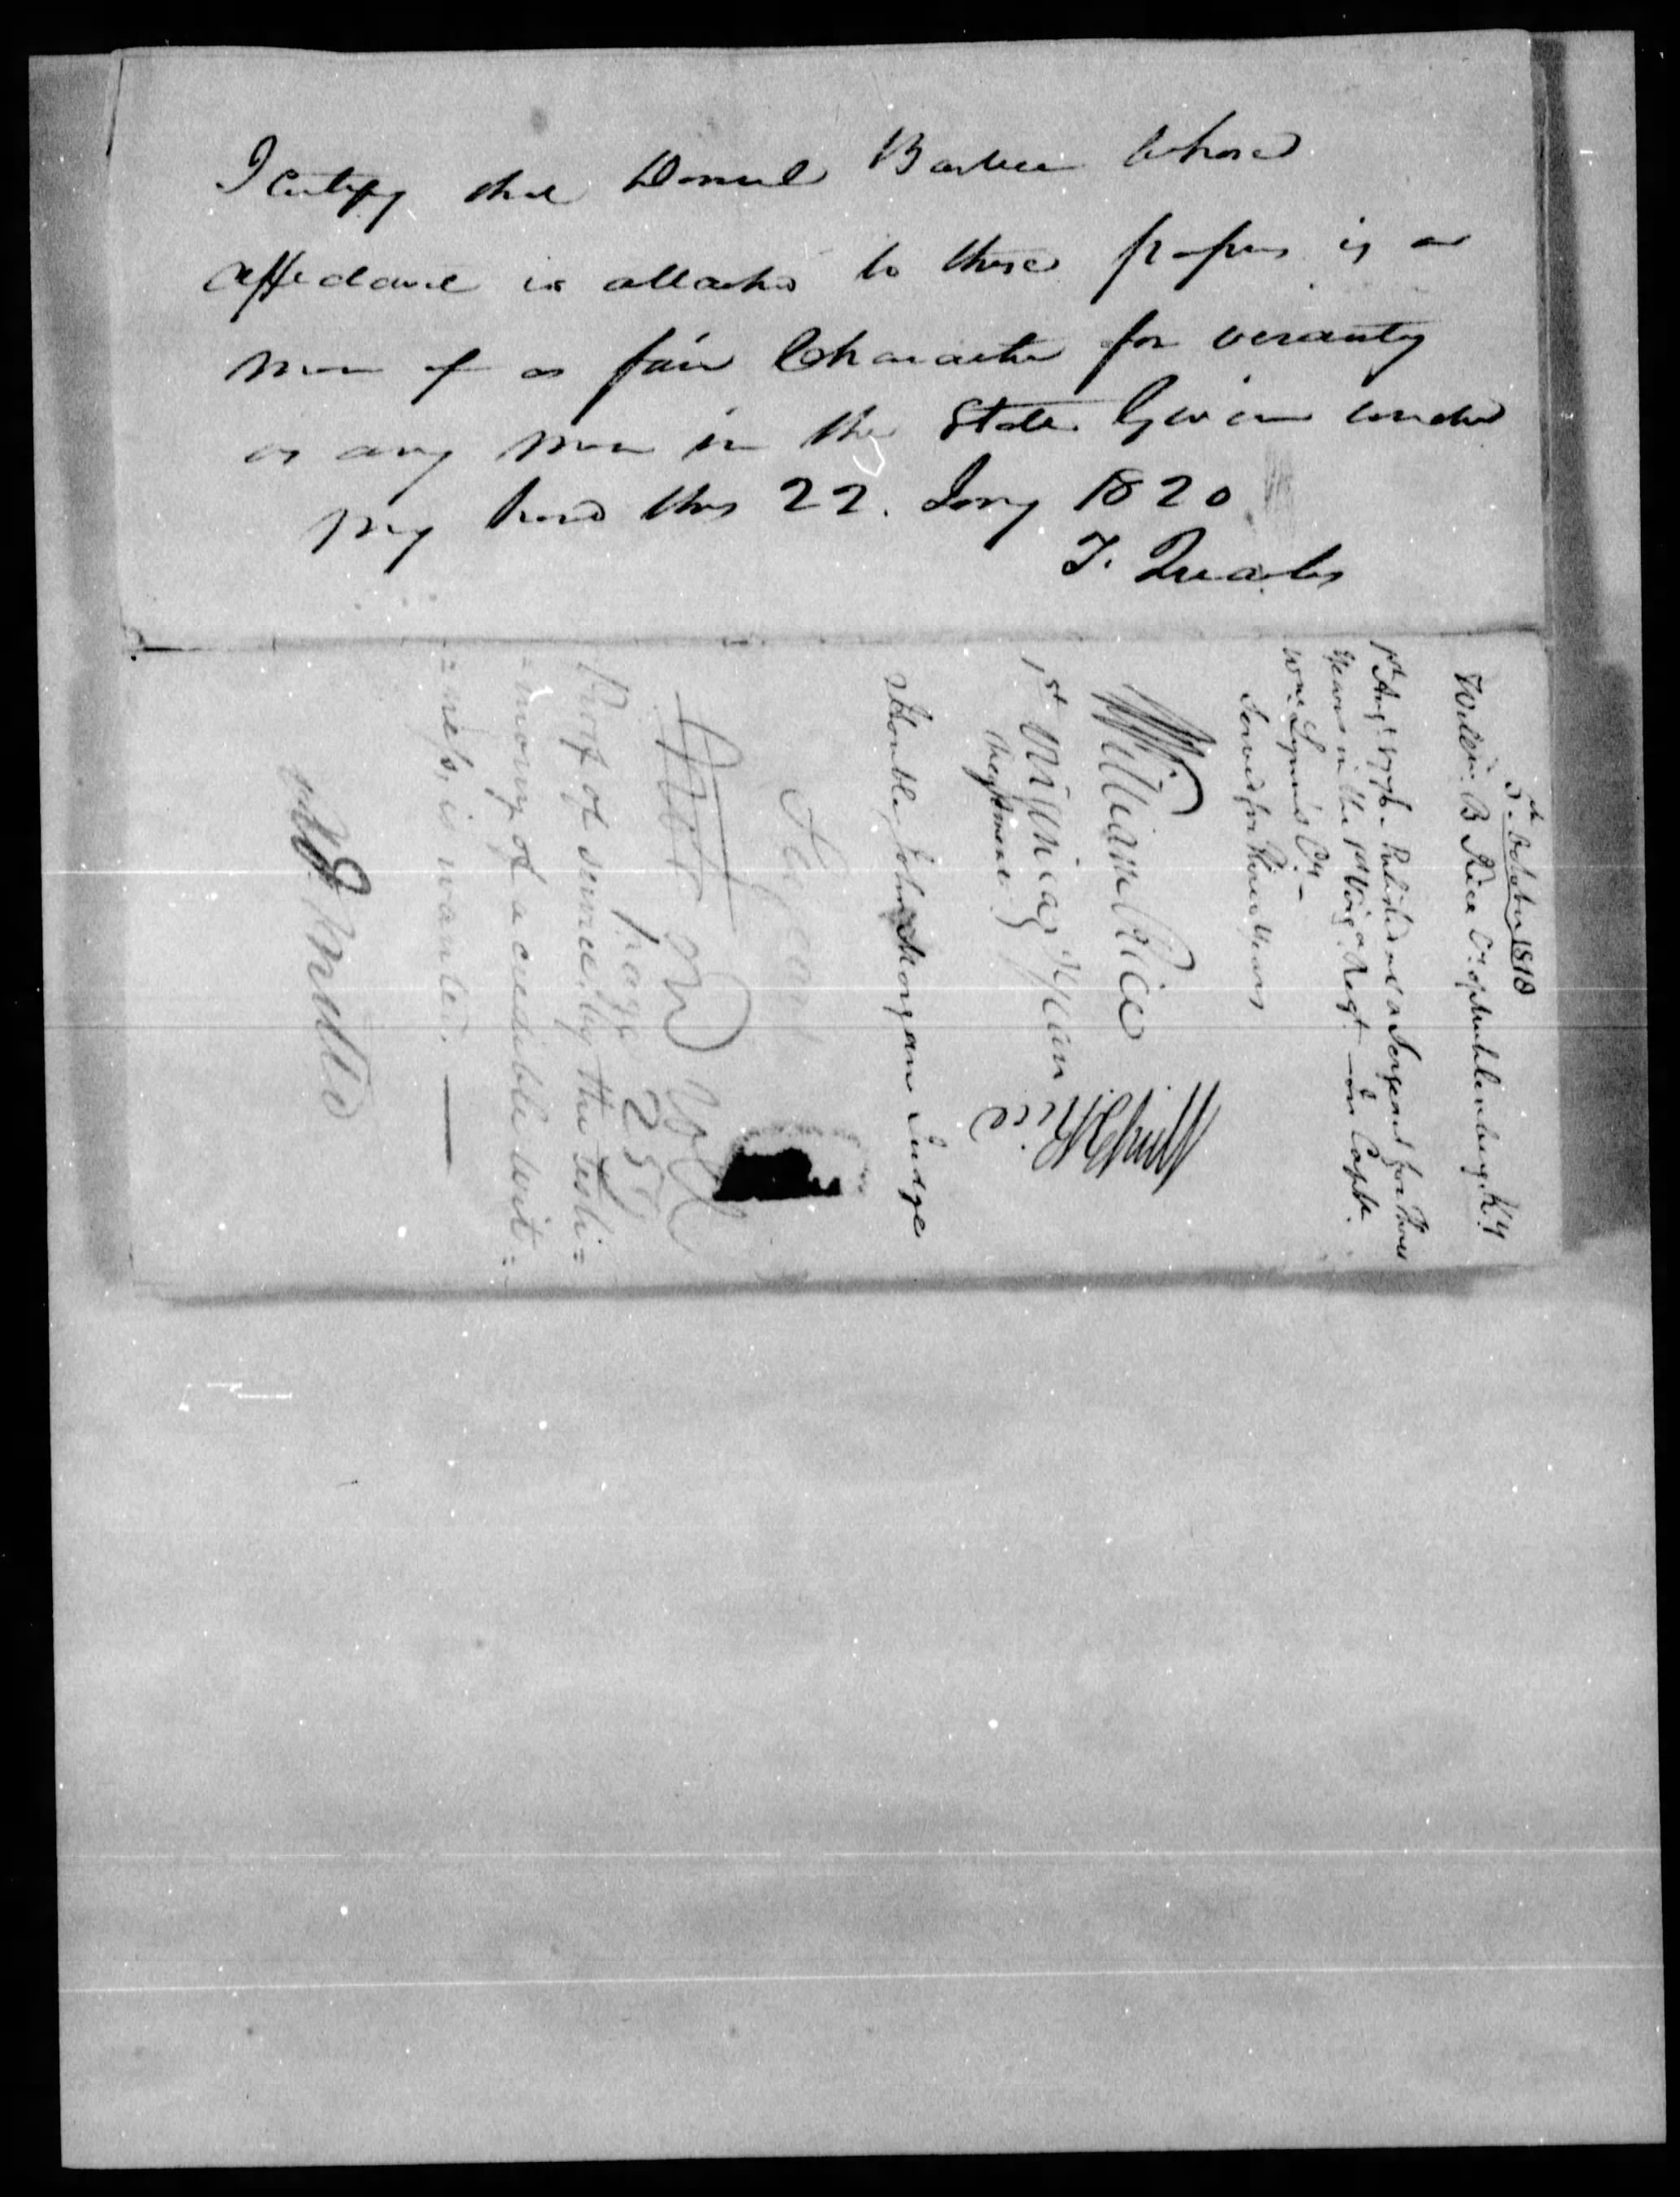 I Certify that Daniel Barbee whose
affidavit is attached to these papers is a
man of as fair Character for veracity
as any man in the State Given under
my hand this 22. Jany 1820
T. Quarles
5th October 1818
William B Rice Cy of Muhlenberg Ky
1st Augt Enlisted as a Sergent for three
years in the 1st Virga Regt — In Capt.
Wm Cy —
Served for three Years
William Rice
Wm B Rice
1st Virginia Line
Regiment
Honble John Morgan Judge
page 255
Proof of service, by the testi=
=mony of a credible wit=
=ness, is wanted. —